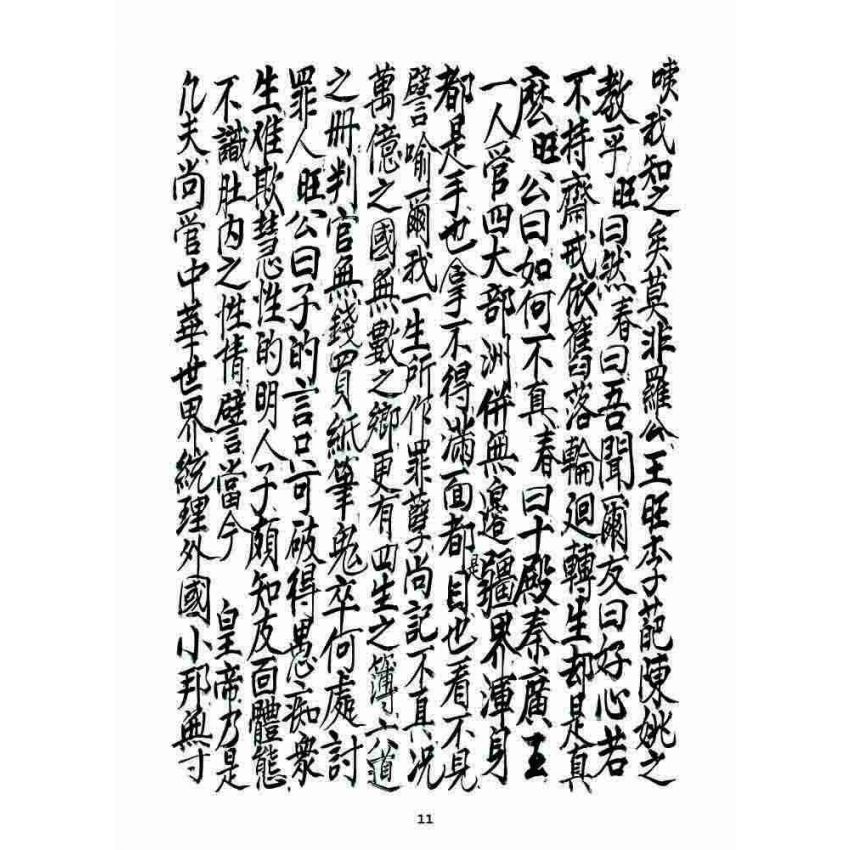 咦我知之矣莫非羅公王旺李葩陳姚之
教乎旺曰然春曰吾聞爾友曰好心若
不持齋戒依舊落輪廻轉生却是真
麽旺公曰如何不真春曰十殿秦廣王
一人管四大部洲併無邉疆界渾身
都是手也拿不得滿面都是目也看不見
譬喻爾我一生所作罪孽尚記不真况
萬億之國無數之鄉更有四生之簿六道
之冊判官無錢買紙筆鬼卒何處討
罪人旺公曰子的言只可破得愚痴衆
生难欺慧性的明人子頗知皮面體態
不識肚内之性情譬當今 皇帝乃是
凢夫尚管中華世界統理外國小邦無寸
11